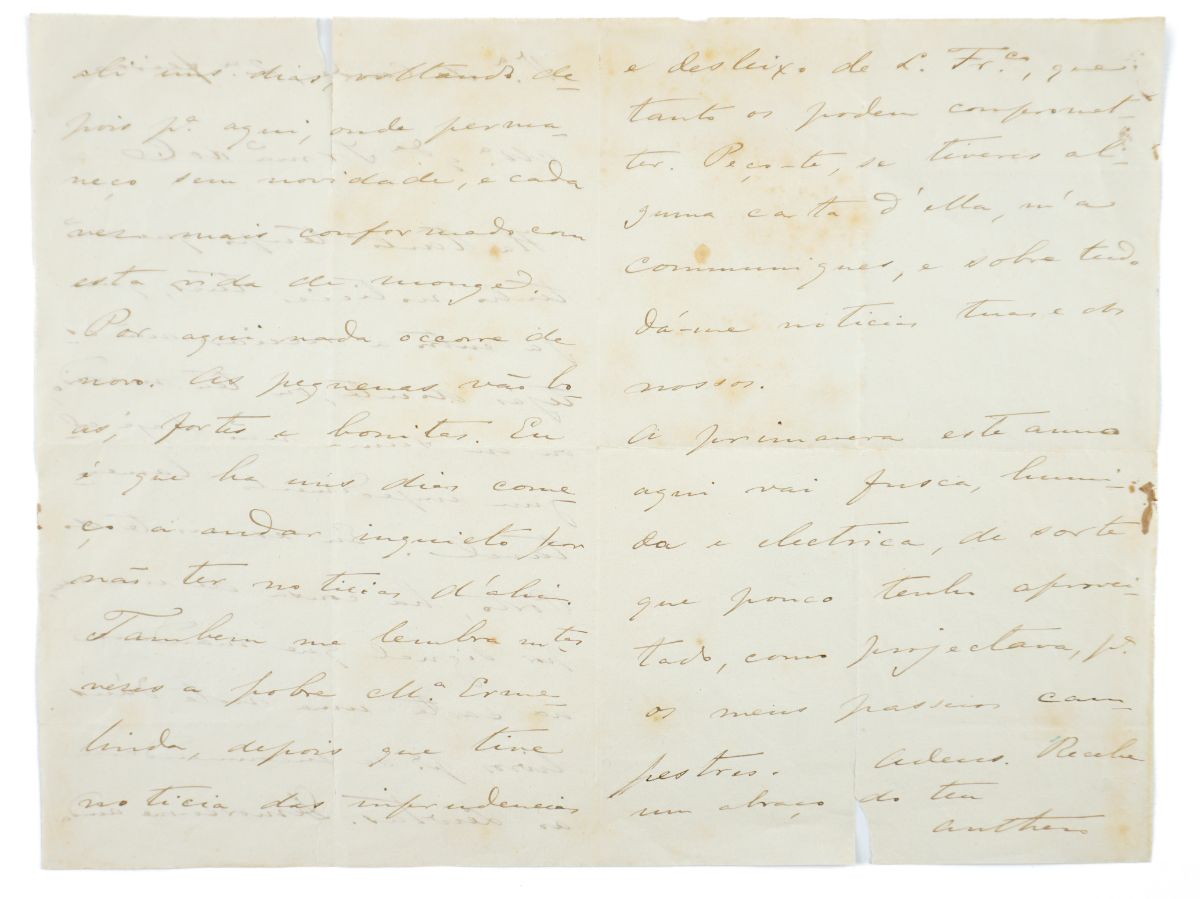 ali uns dias, voltando de-
pois pª. aqui, onde perma-
neço sem novidade, e cada
vez mais conformado com
esta vida de monge.
Por aqui nada occorre de
novo. As pequenas vão bo-
as, fortes e bonitas. Eu
é que ha uns dias come
ço a andar inquieto por
não ter noticias d'ahi.
Tambem me lembra mtas
vezes a pobre Mª. Erme-
linda, depois que tive
noticia das imprudencias
e desleixo de L. Frco, que
tanto os podem compromet-
ter. Peço-te, se tiveres al-
guma carta d'ella, m'a
communiques, e sobre tudo
dá-me noticias tuas e dos
nossos.
A primavera este anno
aqui vai fusca, humi-
da e electrica, de sorte
que pouco tenho aprovei-
tado, como projectava, pª.
os meus passeios cam-
pestres. Adeus. Recebe
um abraço do teu
Anthero